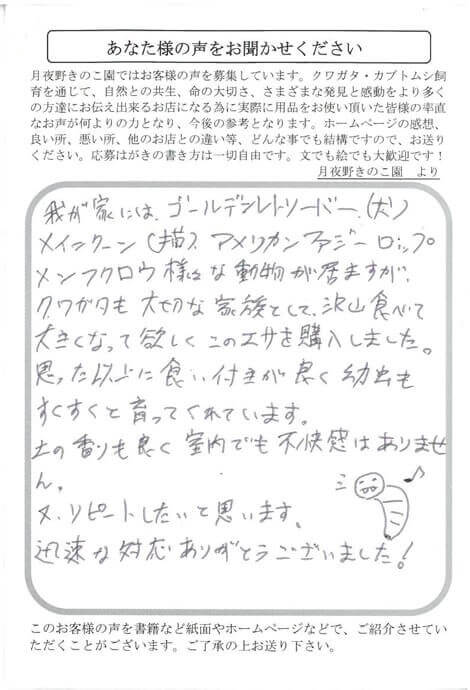 あなた様の声をお聞かせください
月夜野きのこ園ではお客様の声を募集しています。クワガタ・カブトムシ飼
育を通じて、自然との共生、命の大切さ、さまざまな発見と感動をより多く
の方達にお伝え出来るお店になる為に実際に用品をお使い頂いた皆様の率直
なお声が何よりの力となり、今後の参考となります。ホームページの感想、
良い所、悪い所、他のお店との違い等、どんな事でも結構ですので、お送り
ください。応募はがきの書き方は一切自由です。文でも絵でも大歓迎です！
月夜野きのこ園　より
我が家には、ゴールデンレトリーバー、(犬)
メインクーン(猫)、アメリカンファジーロップ
メンフクロウ様々な動物が居ますが、
クワガタも大切な家族として、沢山食べて
大きくなって欲しくこのエサを購入しました。
思った以上に食い付きが良く幼虫も
すくすくと育ってくれています。
土の香りも良く室内でも不快感はありませ
ん。
又、リピートしたいと思います。
迅速な対応ありがとうございました！
このお客様の声を書籍など紙面やホームページなどで、ご紹介させてい
ただくことがございます。ご了承の上お送り下さい。